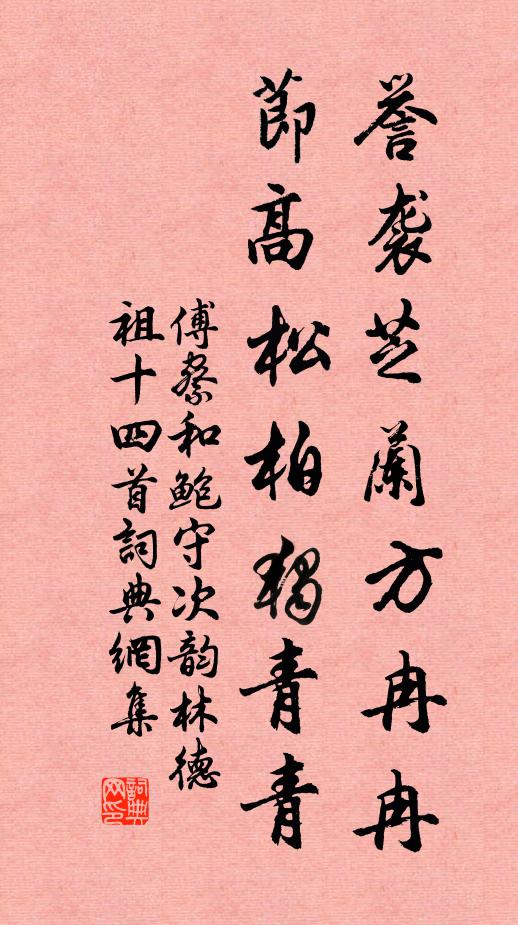 誉袭芝蘭方冉冉
節高松柏獨青青
傅察和鮑守次韵林德
祖十四首詞典網集
詞典网印